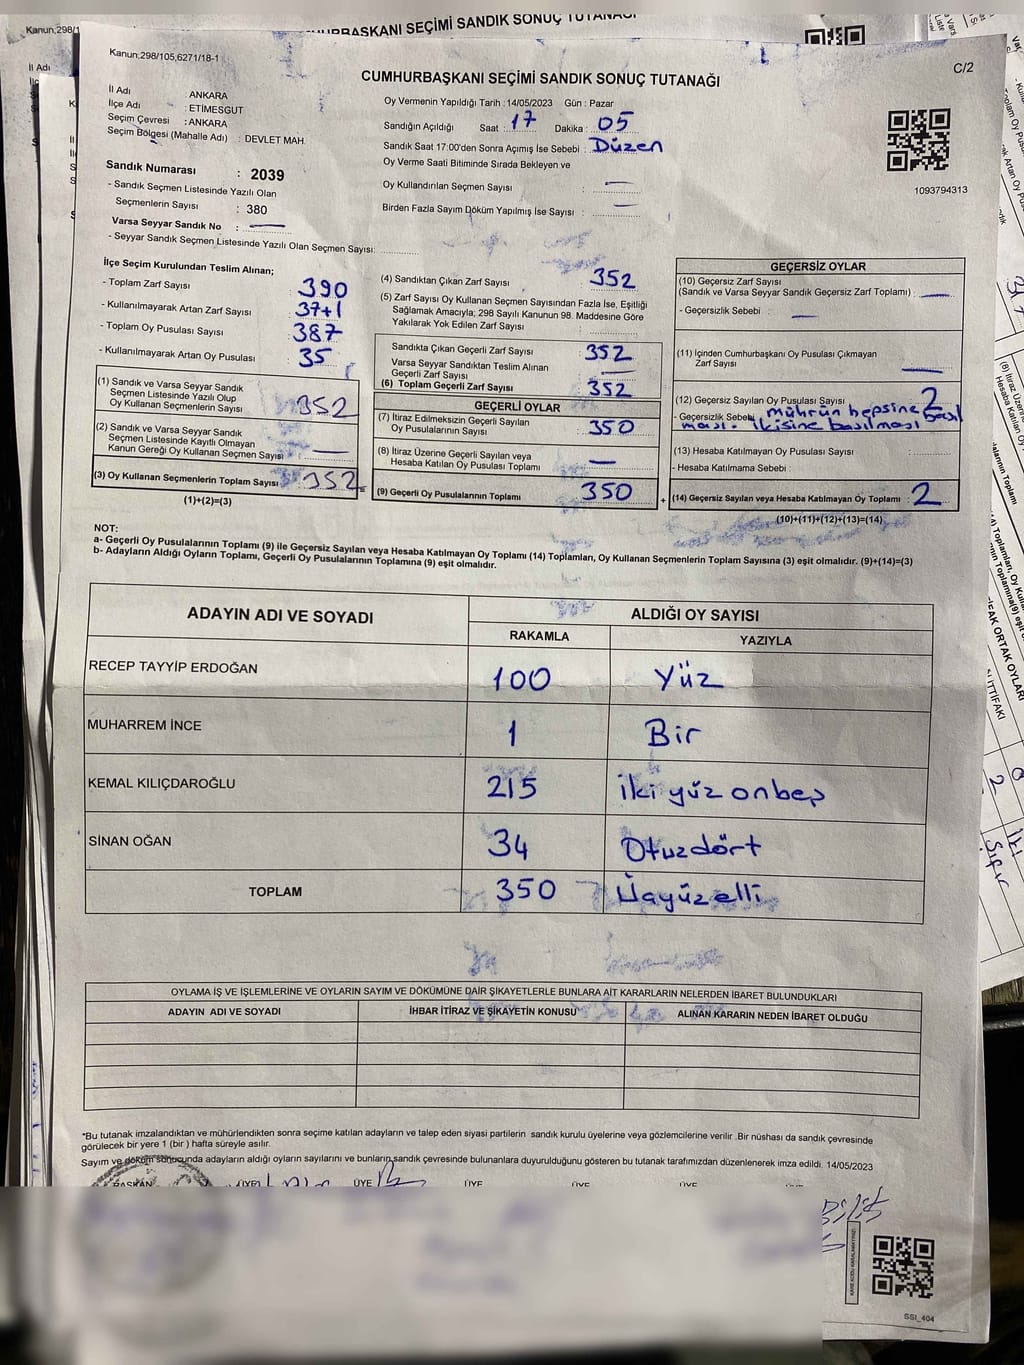 Kanun;298/1
CUMHURBAŞKANI SEÇİMİ SANDIK SONUÇ TUTANAĞI
Kanun;298/105,6271/18-1
C/2
CUMHURBAŞKANI SEÇİMİ SANDIK SONUÇ TUTANAĞI
İl Adı : ANKARA
İlçe Adı : ETİMESGUT
Seçim Çevresi : ANKARA
Seçim Bölgesi (Mahalle Adı) : DEVLET MAH.
Oy Vermenin Yapıldığı Tarih : 14/05/2023 Gün : Pazar
Sandığın Açıldığı Saat : 17 Dakika : 05
Sandık Saat 17:00'den Sonra Açımış İse Sebebi : Düzen
Oy Verme Saati Bitiminde Sırada Bekleyen ve
Oy Kullandırılan Seçmen Sayısı : —
Birden Fazla Sayım Döküm Yapılmış İse Sayısı : —
1093794313
Sandık Numarası : 2039
- Sandık Seçmen Listesinde Yazılı Olan
Seçmenlerin Sayısı : 380
Varsa Seyyar Sandık No : —
- Seyyar Sandık Seçmen Listesinde Yazılı Olan Seçmen Sayısı:
İlçe Seçim Kurulundan Teslim Alınan;
- Toplam Zarf Sayısı : 390
- Kullanılmayarak Artan Zarf Sayısı : 37+1
- Toplam Oy Pusulası Sayısı : 387
- Kullanılmayarak Artan Oy Pusulası : 35
(1) Sandık ve Varsa Seyyar Sandık
Seçmen Listesinde Yazılı Olup
Oy Kullanan Seçmenlerin Sayısı : 352
(2) Sandık ve Varsa Seyyar Sandık
Seçmen Listesinde Kayıtlı Olmayan
Kanun Gereği Oy Kullanan Seçmen Sayısı : —
(3) Oy Kullanan Seçmenlerin Toplam Sayısı : 352
(1)+(2)=(3)
(4) Sandıktan Çıkan Zarf Sayısı : 352
(5) Zarf Sayısı Oy Kullanan Seçmen Sayısından Fazla İse, Eşitliği
Sağlamak Amacıyla; 298 Sayılı Kanunun 98. Maddesine Göre
Yakılarak Yok Edilen Zarf Sayısı :
Sandıkta Çıkan Geçerli Zarf Sayısı : 352
Varsa Seyyar Sandıktan Teslim Alınan
Geçerli Zarf Sayısı : —
(6) Toplam Geçerli Zarf Sayısı : 352
GEÇERLİ OYLAR
(7) İtiraz Edilmeksizin Geçerli Sayılan
Oy Pusulalarının Sayısı : 350
(8) İtiraz Üzerine Geçerli Sayılan veya
Hesaba Katılan Oy Pusulası Toplamı : —
(9) Geçerli Oy Pusulalarının Toplamı : 350
+
GEÇERSİZ OYLAR
(10) Geçersiz Zarf Sayısı
(Sandık ve Varsa Seyyar Sandık Geçersiz Zarf Toplamı) : —
- Geçersizlik Sebebi : —
(11) İçinden Cumhurbaşkanı Oy Pusulası Çıkmayan
Zarf Sayısı : —
(12) Geçersiz Sayılan Oy Pusulası Sayısı : 2
- Geçersizlik Sebebi : mührün hepsine basıl
ması. ikisine basılması
(13) Hesaba Katılmayan Oy Pusulası Sayısı :
- Hesaba Katılmama Sebebi :
(14) Geçersiz Sayılan veya Hesaba Katılmayan Oy Toplamı : 2
(10)+(11)+(12)+(13)=(14)
NOT:
a- Geçerli Oy Pusulalarının Toplamı (9) ile Geçersiz Sayılan veya Hesaba Katılmayan Oy Toplamı (14) Toplamları, Oy Kullanan Seçmenlerin Toplam Sayısına (3) eşit olmalıdır. (9)+(14)=(3)
b- Adayların Aldığı Oyların Toplamı, Geçerli Oy Pusulalarının Toplamına (9) eşit olmalıdır.
ADAYIN ADI VE SOYADI ALDIĞI OY SAYISI
RAKAMLA YAZIYLA
RECEP TAYYİP ERDOĞAN 100 Yüz
MUHARREM İNCE 1 Bir
KEMAL KILIÇDAROĞLU 215 iki yüz onbeş
SİNAN OĞAN 34 Otuzdört
TOPLAM 350 Üçyüzelli
OYLAMA İŞ VE İŞLEMLERİNE VE OYLARIN SAYIM VE DÖKÜMÜNE DAİR ŞİKAYETLERLE BUNLARA AİT KARARLARIN NELERDEN İBARET BULUNDUKLARI
ADAYIN ADI VE SOYADI İHBAR İTİRAZ VE ŞİKAYETİN KONUSU ALINAN KARARIN NEDEN İBARET OLDUĞU
*Bu tutanak imzalandıktan ve mühürlendikten sonra seçime katılan adayların ve talep eden siyasi partilerin sandık kurulu üyelerine veya gözlemcilerine verilir .Bir nüshası da sandık çevresinde
görülecek bir yere 1 (bir ) hafta süreyle asılır.
Sayım ve döküm sonucunda adayların aldığı oyların sayılarını ve bunların sandık çevresinde bulunanlara duyurulduğunu gösteren bu tutanak tarafımızdan düzenlenerek imza edildi. 14/05/2023
BAŞKAN ÜYE ÜYE ÜYE ÜYE ÜYE
SSI_404